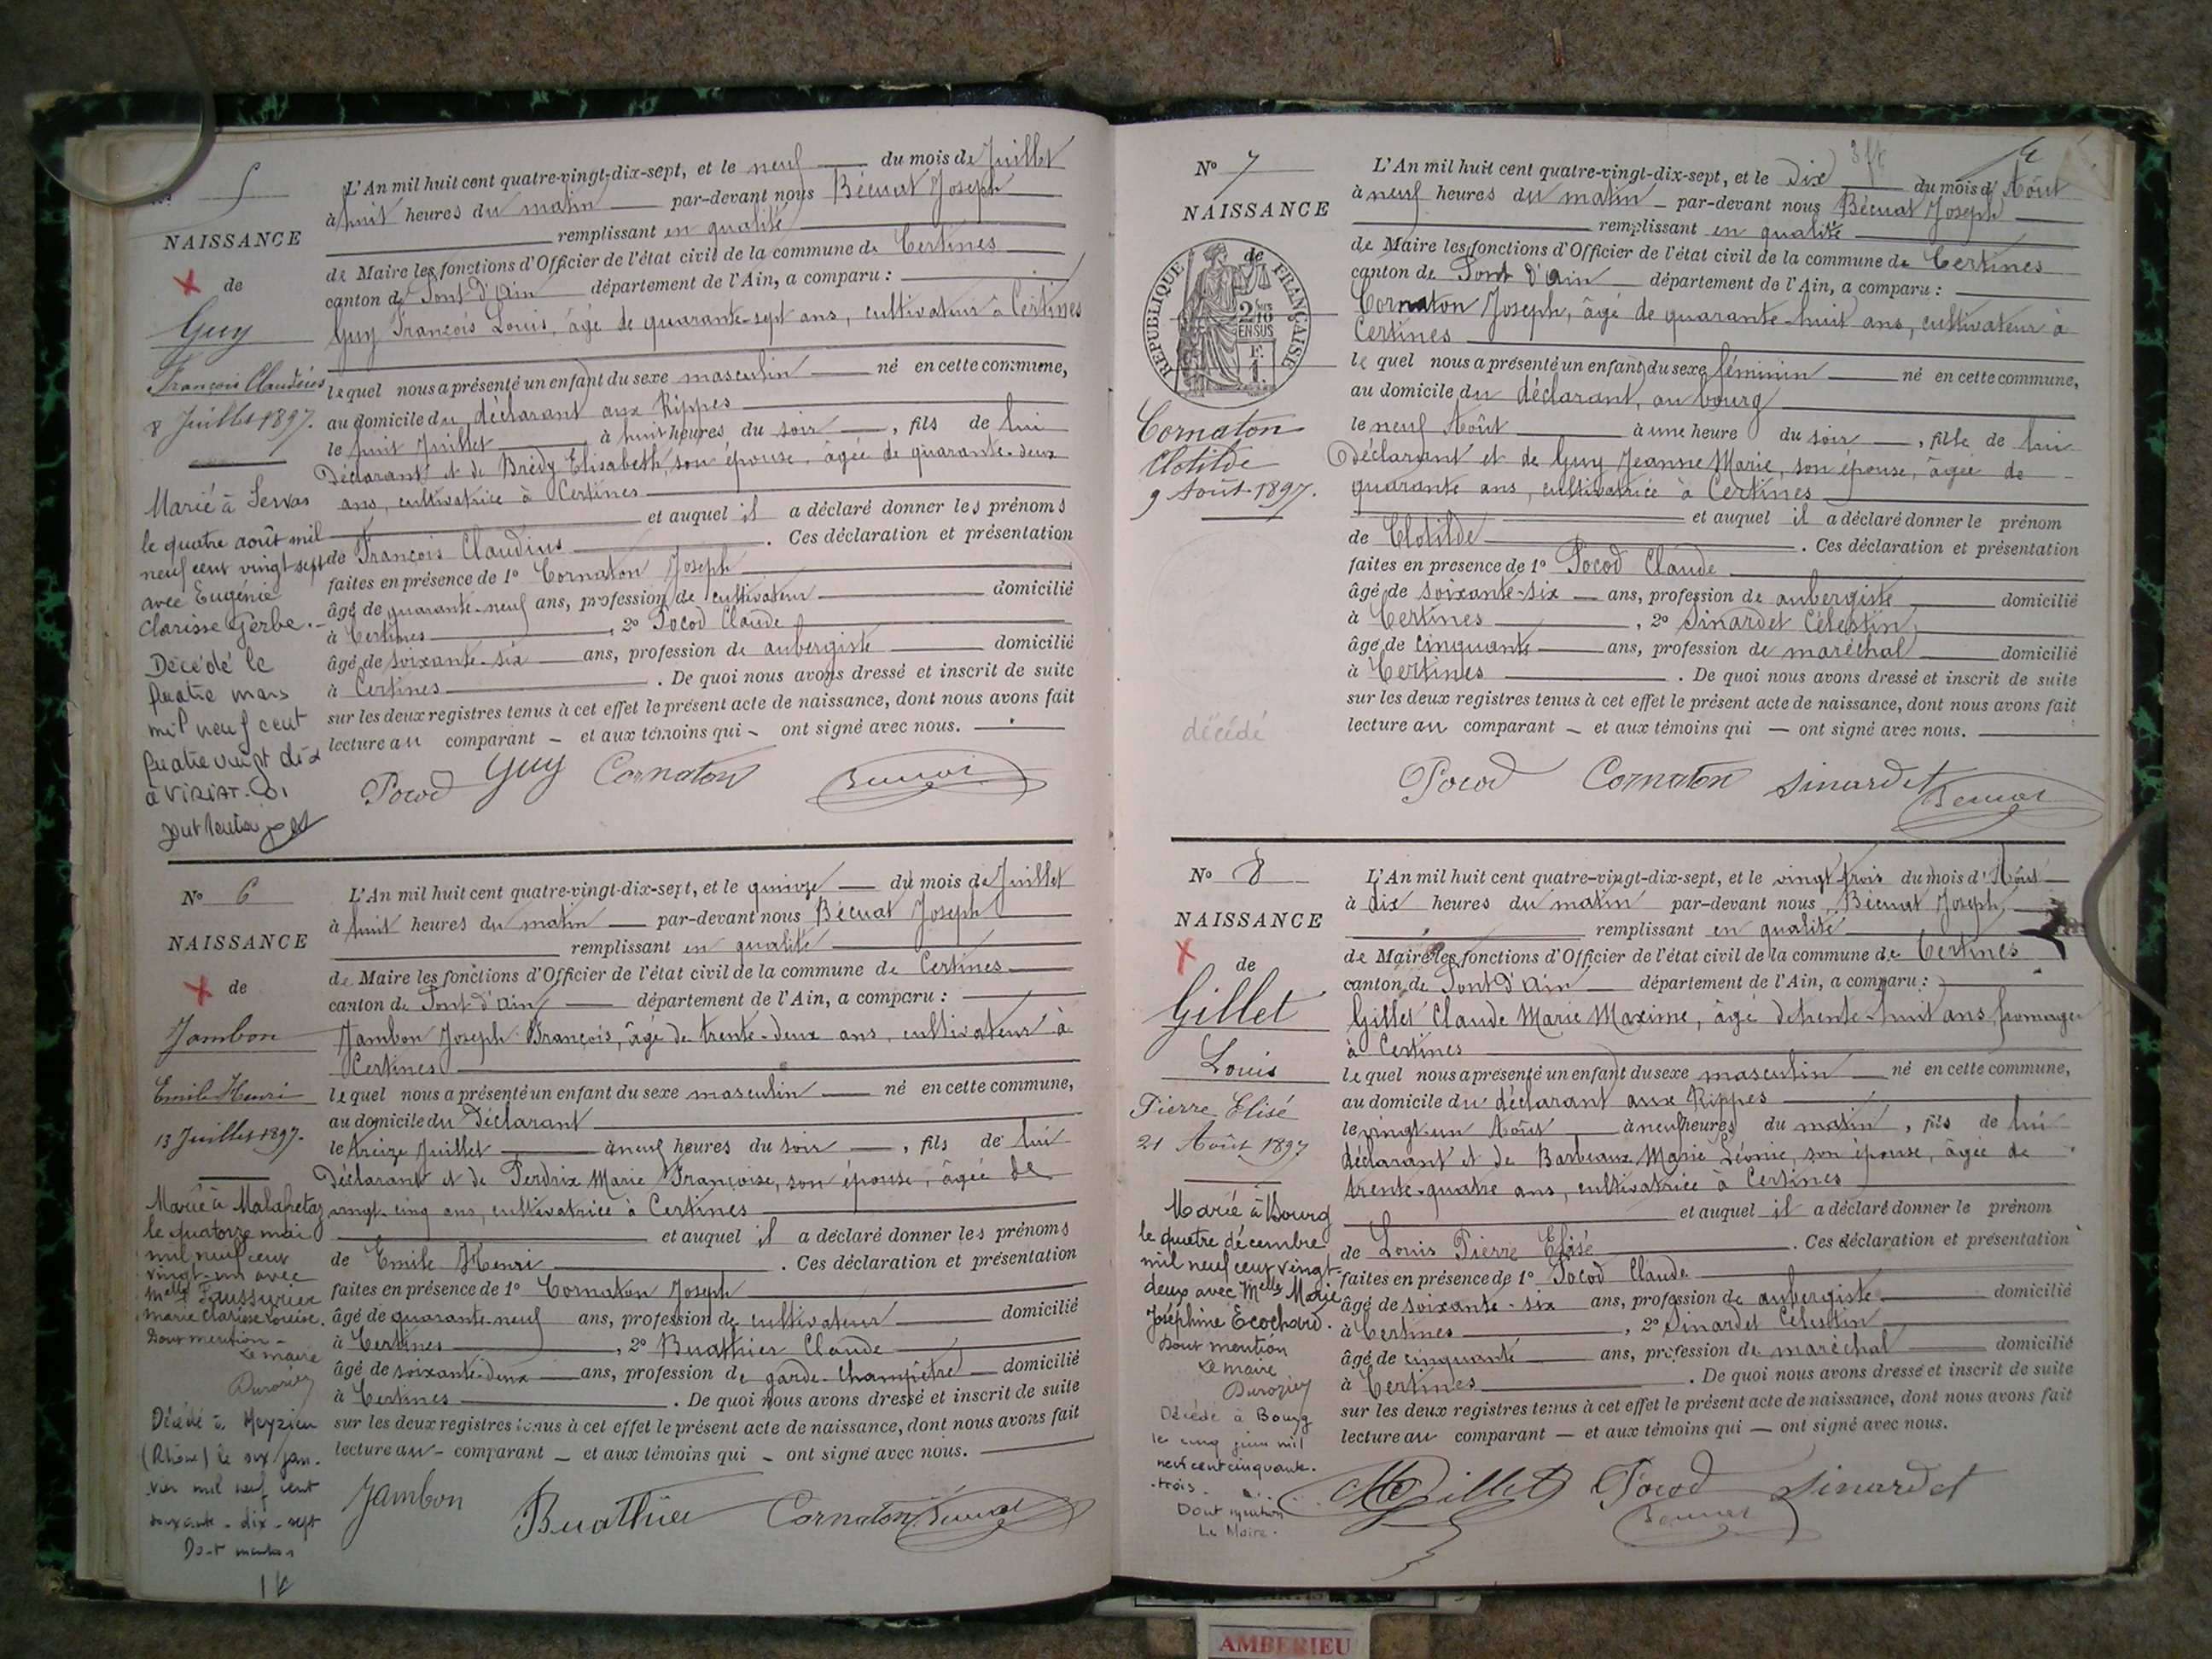 5
NAISSANCE
de
Guy
François Claudius
8 Juillet 1897.
Marié à Servas
le quatre août mil
neuf cent vingt sept
avec Eugénie
Clarisse Gerbe.
Décédé le
quatre mars
mil neuf cent
quatre vingt dix
à VIRIAT. 01
L'An mil huit cent quatre-vingt-dix-sept, et le neuf du mois de Juillet
à huit heures du matin par-devant nous Bécuat Joseph
remplissant en qualité
de Maire les fonctions d'Officier de l'état civil de la commune de Certines
canton de Pont d'Ain département de l'Ain, a comparu :
Guy François Louis, âgé de quarante-sept ans, cultivateur à Certines
lequel nous a présenté un enfant du sexe masculin né en cette commune,
au domicile du déclarant aux Rippes
le huit Juillet à huit heures du soir, fils de lui
Déclarant et de Brédy Elisabeth, son épouse, âgée de quarante-deux
ans, cultivatrice à Certines
et auquel il a déclaré donner les prénoms
de François Claudius. Ces déclaration et présentation
faites en présence de 1º Cornaton Joseph
âgé de quarante-neuf ans, profession de cultivateur domicilié
à Certines, 2º Pocod Claude
âgé de soixante-six ans, profession de aubergiste domicilié
à Certines. De quoi nous avons dressé et inscrit de suite
sur les deux registres tenus à cet effet le présent acte de naissance, dont nous avons fait
lecture au comparant – et aux témoins qui – ont signé avec nous.
Pocod Guy Cornaton Bécuat
Nº 6
NAISSANCE
de
Jambon
Emile Henri
13 Juillet 1897.
Marié à Malafretaz
le quatorze mai
mil neuf cent
vingt-un avec
Melle Faussurier
Marie Clarisse Louise.
Dont mention -
Le maire
Durozier
Décédé à Meyzieu
(Rhône) le six jan-
vier mil neuf cent
soixante-dix-sept
Dont mention
L'An mil huit cent quatre-vingt-dix-sept, et le quinze du mois de Juillet
à huit heures du matin par-devant nous Bécuat Joseph
remplissant en qualité
de Maire les fonctions d'Officier de l'état civil de la commune de Certines
canton de Pont d'Ain département de l'Ain, a comparu :
Jambon Joseph François, âgé de trente-deux ans, cultivateur à
Certines
lequel nous a présenté un enfant du sexe masculin né en cette commune,
au domicile du Déclarant
le treize Juillet à neuf heures du soir, fils de lui
Déclarant et de Perdrix Marie Françoise, son épouse, âgée de
vingt-cinq ans, cultivatrice à Certines
et auquel il a déclaré donner les prénoms
de Emile Henri. Ces déclaration et présentation
faites en présence de 1º Cornaton Joseph
âgé de quarante-neuf ans, profession de cultivateur domicilié
à Certines, 2º Buathier Claude
âgé de soixante-deux ans, profession de garde-champêtre domicilié
à Certines. De quoi nous avons dressé et inscrit de suite
sur les deux registres tenus à cet effet le présent acte de naissance, dont nous avons fait
lecture au – comparant – et aux témoins qui – ont signé avec nous.
Jambon Buathier Cornaton Bécuat
Nº 7
NAISSANCE
de
RÉPUBLIQUE FRANÇAISE
2/10 EN SUS
F. 1
Cornaton
Clotilde
9 Août 1897.
décédé
L'An mil huit cent quatre-vingt-dix-sept, et le Dix du mois d'Août
à neuf heures du matin – par-devant nous Bécuat Joseph
remplissant en qualité
de Maire les fonctions d'Officier de l'état civil de la commune de Certines
canton de Pont d'Ain département de l'Ain, a comparu :
Cornaton Joseph, âgé de quarante-huit ans, cultivateur à
Certines
lequel nous a présenté un enfant du sexe féminin né en cette commune,
au domicile du déclarant, au bourg
le neuf Août à une heure du soir, fille de lui
Déclarant et de Guy Jeanne Marie, son épouse, âgée de
quarante ans, cultivatrice à Certines
et auquel il a déclaré donner le prénom
de Clotilde. Ces déclaration et présentation
faites en présence de 1º Pocod Claude
âgé de soixante-six ans, profession de aubergiste domicilié
à Certines, 2º Sinardet Célestin
âgé de cinquante ans, profession de maréchal domicilié
à Certines. De quoi nous avons dressé et inscrit de suite
sur les deux registres tenus à cet effet le présent acte de naissance, dont nous avons fait
lecture au comparant – et aux témoins qui – ont signé avec nous.
Pocod Cornaton Sinardet Bécuat
Nº 8
NAISSANCE
de
Gillet
Louis
Pierre Elisé
21 Août 1897
Marié à Bourg
le quatre décembre
mil neuf cent vingt-
deux avec Melle Marie
Joséphine Ecochard.
Dont mention
Le maire
Durozier
Décédé à Bourg
le cinq juin mil
neuf cent cinquante-
-trois.
Dont mention
Le Maire.
L'An mil huit cent quatre-vingt-dix-sept, et le vingt trois du mois d'Août
à dix heures du matin par-devant nous Bécuat Joseph
remplissant en qualité
de Maire les fonctions d'Officier de l'état civil de la commune de Certines
canton de Pont d'Ain département de l'Ain, a comparu :
Gillet Claude Marie Maxime, âgé de trente-huit ans, fromager
à Certines
lequel nous a présenté un enfant du sexe masculin né en cette commune,
au domicile du déclarant aux Rippes
le vingt-un Août à neuf heures du matin, fils de lui
déclarant et de Barbeaux Marie Léonie, son épouse, âgée de
trente-quatre ans, cultivatrice à Certines
et auquel il a déclaré donner le prénom
de Louis Pierre Elisé. Ces déclaration et présentation
faites en présence de 1º Pocod Claude
âgé de soixante-six ans, profession de aubergiste domicilié
à Certines, 2º Sinardet Célestin
âgé de cinquante ans, profession de maréchal domicilié
à Certines. De quoi nous avons dressé et inscrit de suite
sur les deux registres tenus à cet effet le présent acte de naissance, dont nous avons fait
lecture au comparant – et aux témoins qui – ont signé avec nous.
Gillet Pocod Sinardet
Bécuat
AMBERIEU